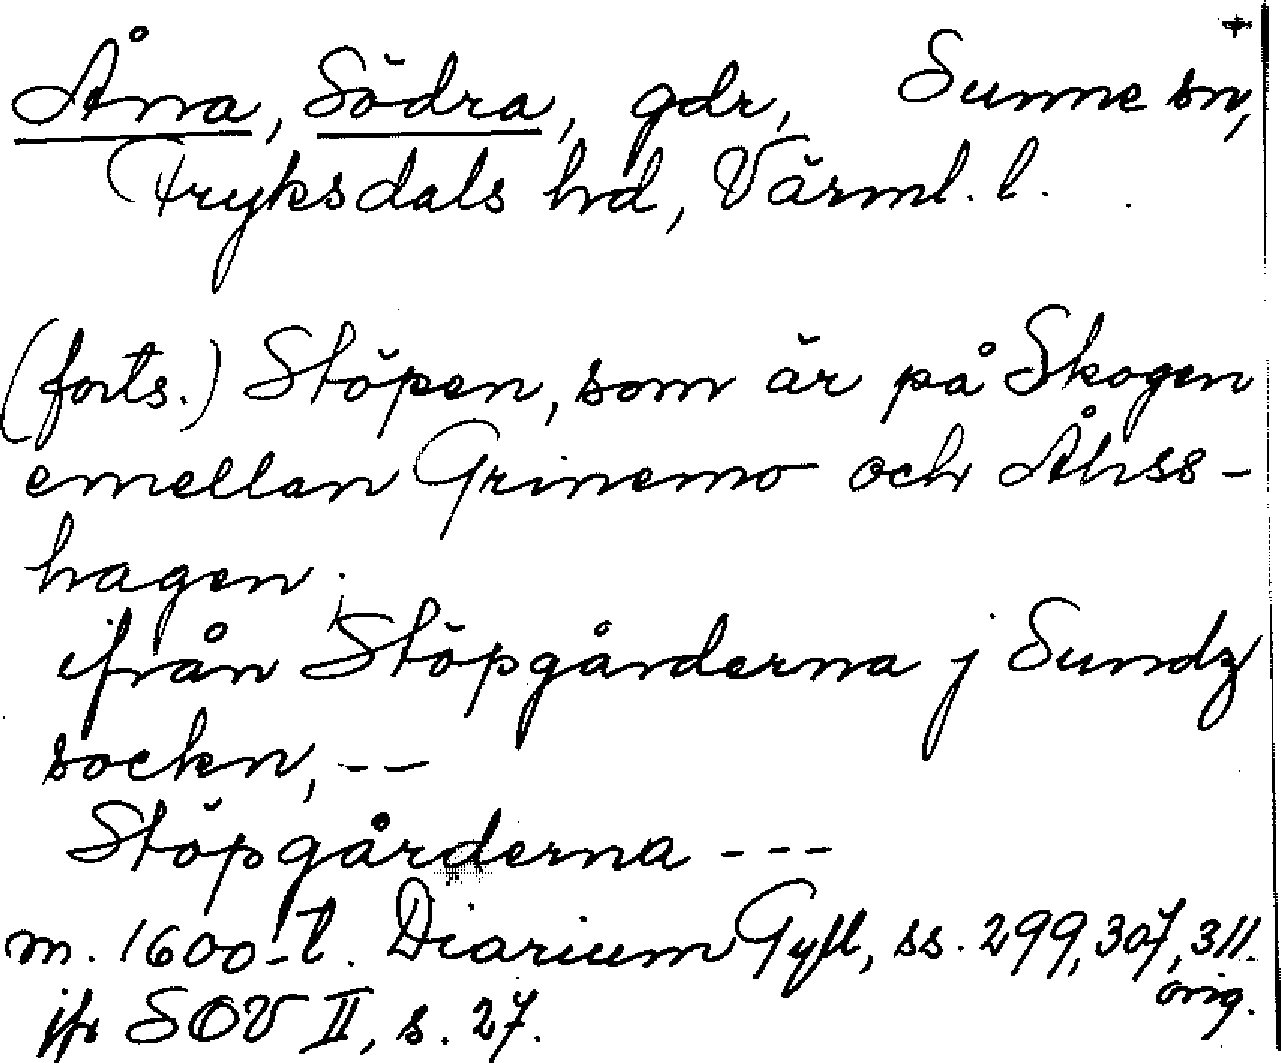 Åna, Södra, gdr, Sunne sn,
Fryksdals hd, Värml. l.
(forts.) Stöpen, som är på Skogen
emellan Grinemo och Åhss-
hagen;
ifrån Stöpgårderna j Sundz
sockn, --
Stöpgårderna ---
m. 1600-t. Diarium Gyll, ss. 299, 307, 311.
orig.
jfr SOV II, s. 27.